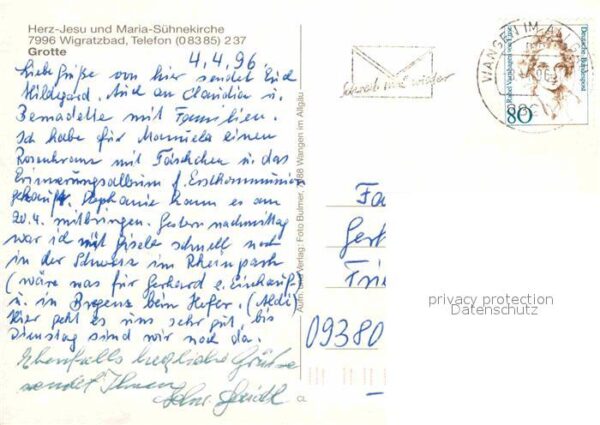 Herz-Jesu und Maria-Sühnekirche
7996 Wigratzbad, Telefon (0 83 85) 2 37
Grotte
4.4.96
Liebe Grüße von hier sendet Euch
Hildegard. Auch an Claudia u.
Bernadette mit Familien.
Ich habe für Manuela einen
Rosenkranz mit Täschchen u. das
Erinnerungsalbum f. Erstkommunion
gekauft. Stephanie kann es am
20.4. mitbringen. Gestern nachmittag
war ich mit Gisela schnell noch
in der Schweiz im Rheinpark
(wäre was für Gerhard z. Einkauf)
u. in Bregenz beim Hofer. (Aldi)
Hier geht es uns sehr gut, bis
Dienstag sind wir noch da.
Ebenfalls herzliche Grüße
sendet Ihnen
Aufn. und Verlag: Foto Bulmer, 7988 Wangen im Allgäu
Schreib mal wieder
WANGEN IM ALLG
Deutsche Bundespost
Rahel Varnhagen von Ense
80
Fa
Ger
Frie
09380
privacy protection
Datenschutz